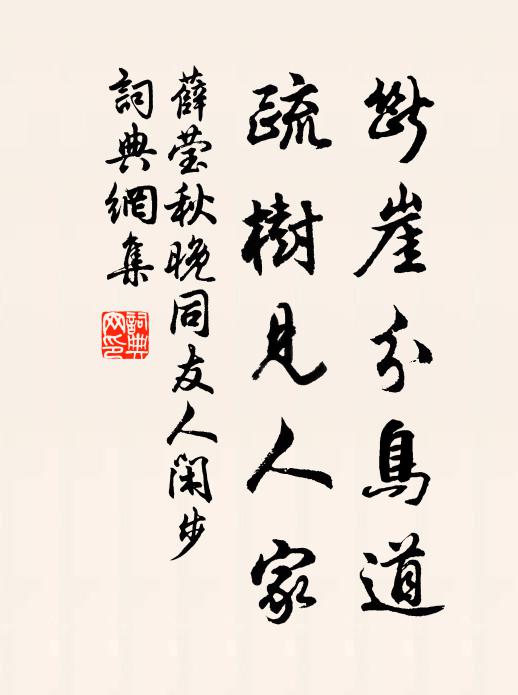 斷崖分鳥道
疏樹見人家
薛瑩秋晚同友人閑步
詞典網集
詞典網印